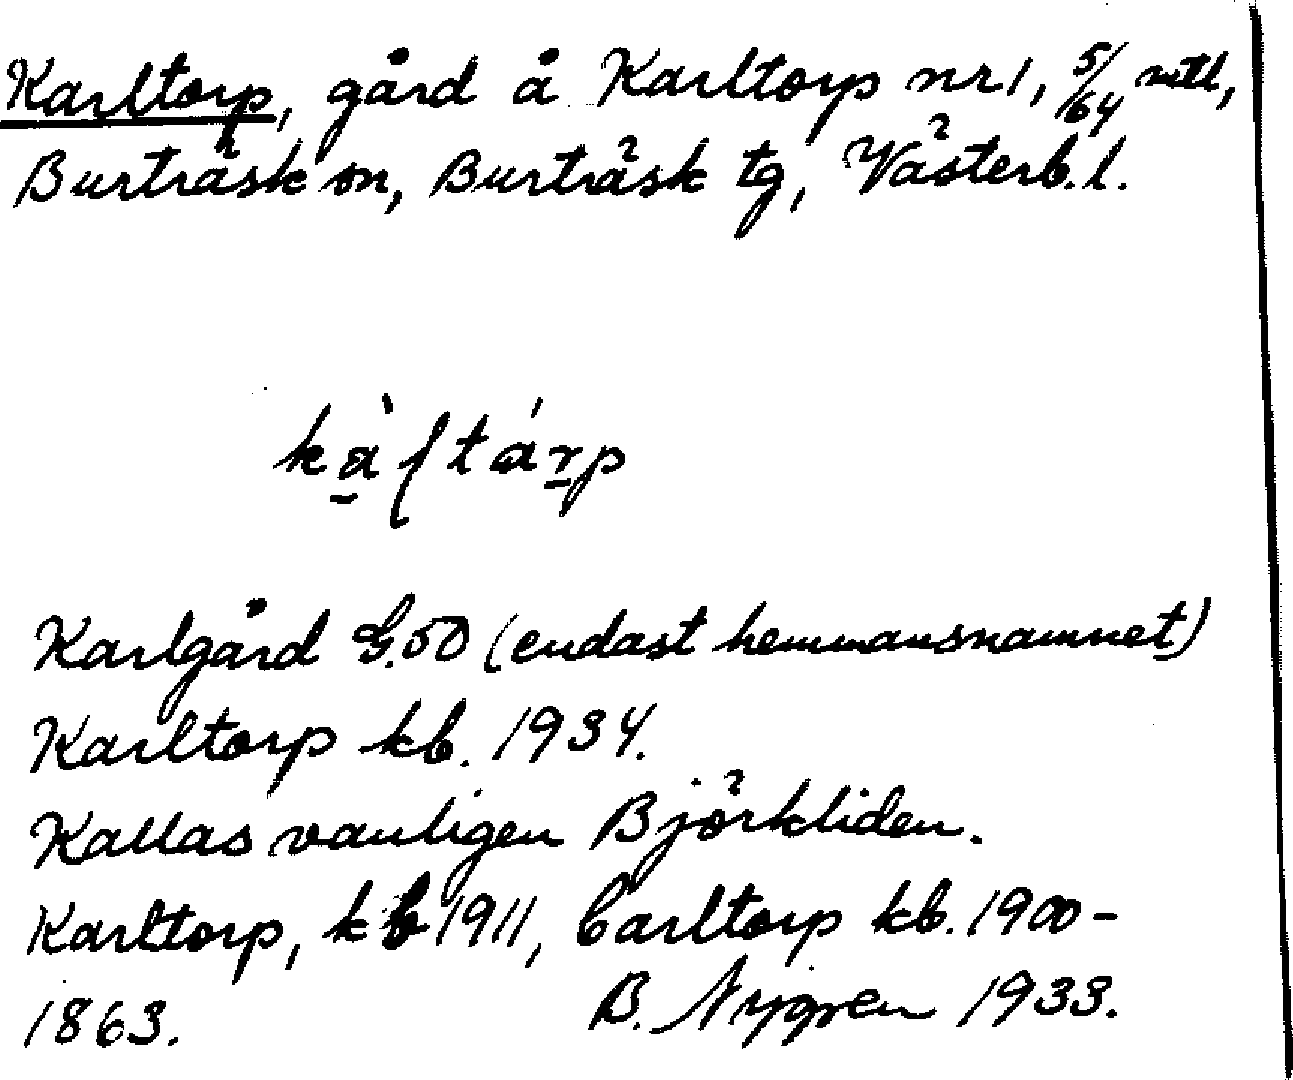 Karltorp, gård å Karltorp nr 1, 5/64 mtl,
Burträsk sn, Burträsk tg, Västerb. l.
kàſtárp
Karlgård G.50 (endast hemmansnamnet)
Karltorp kb. 1934.
Kallas vanligen Björkliden.
Karltorp, kb 1911, Carltorp kb. 1900-
1863. B. Nygren 1933.